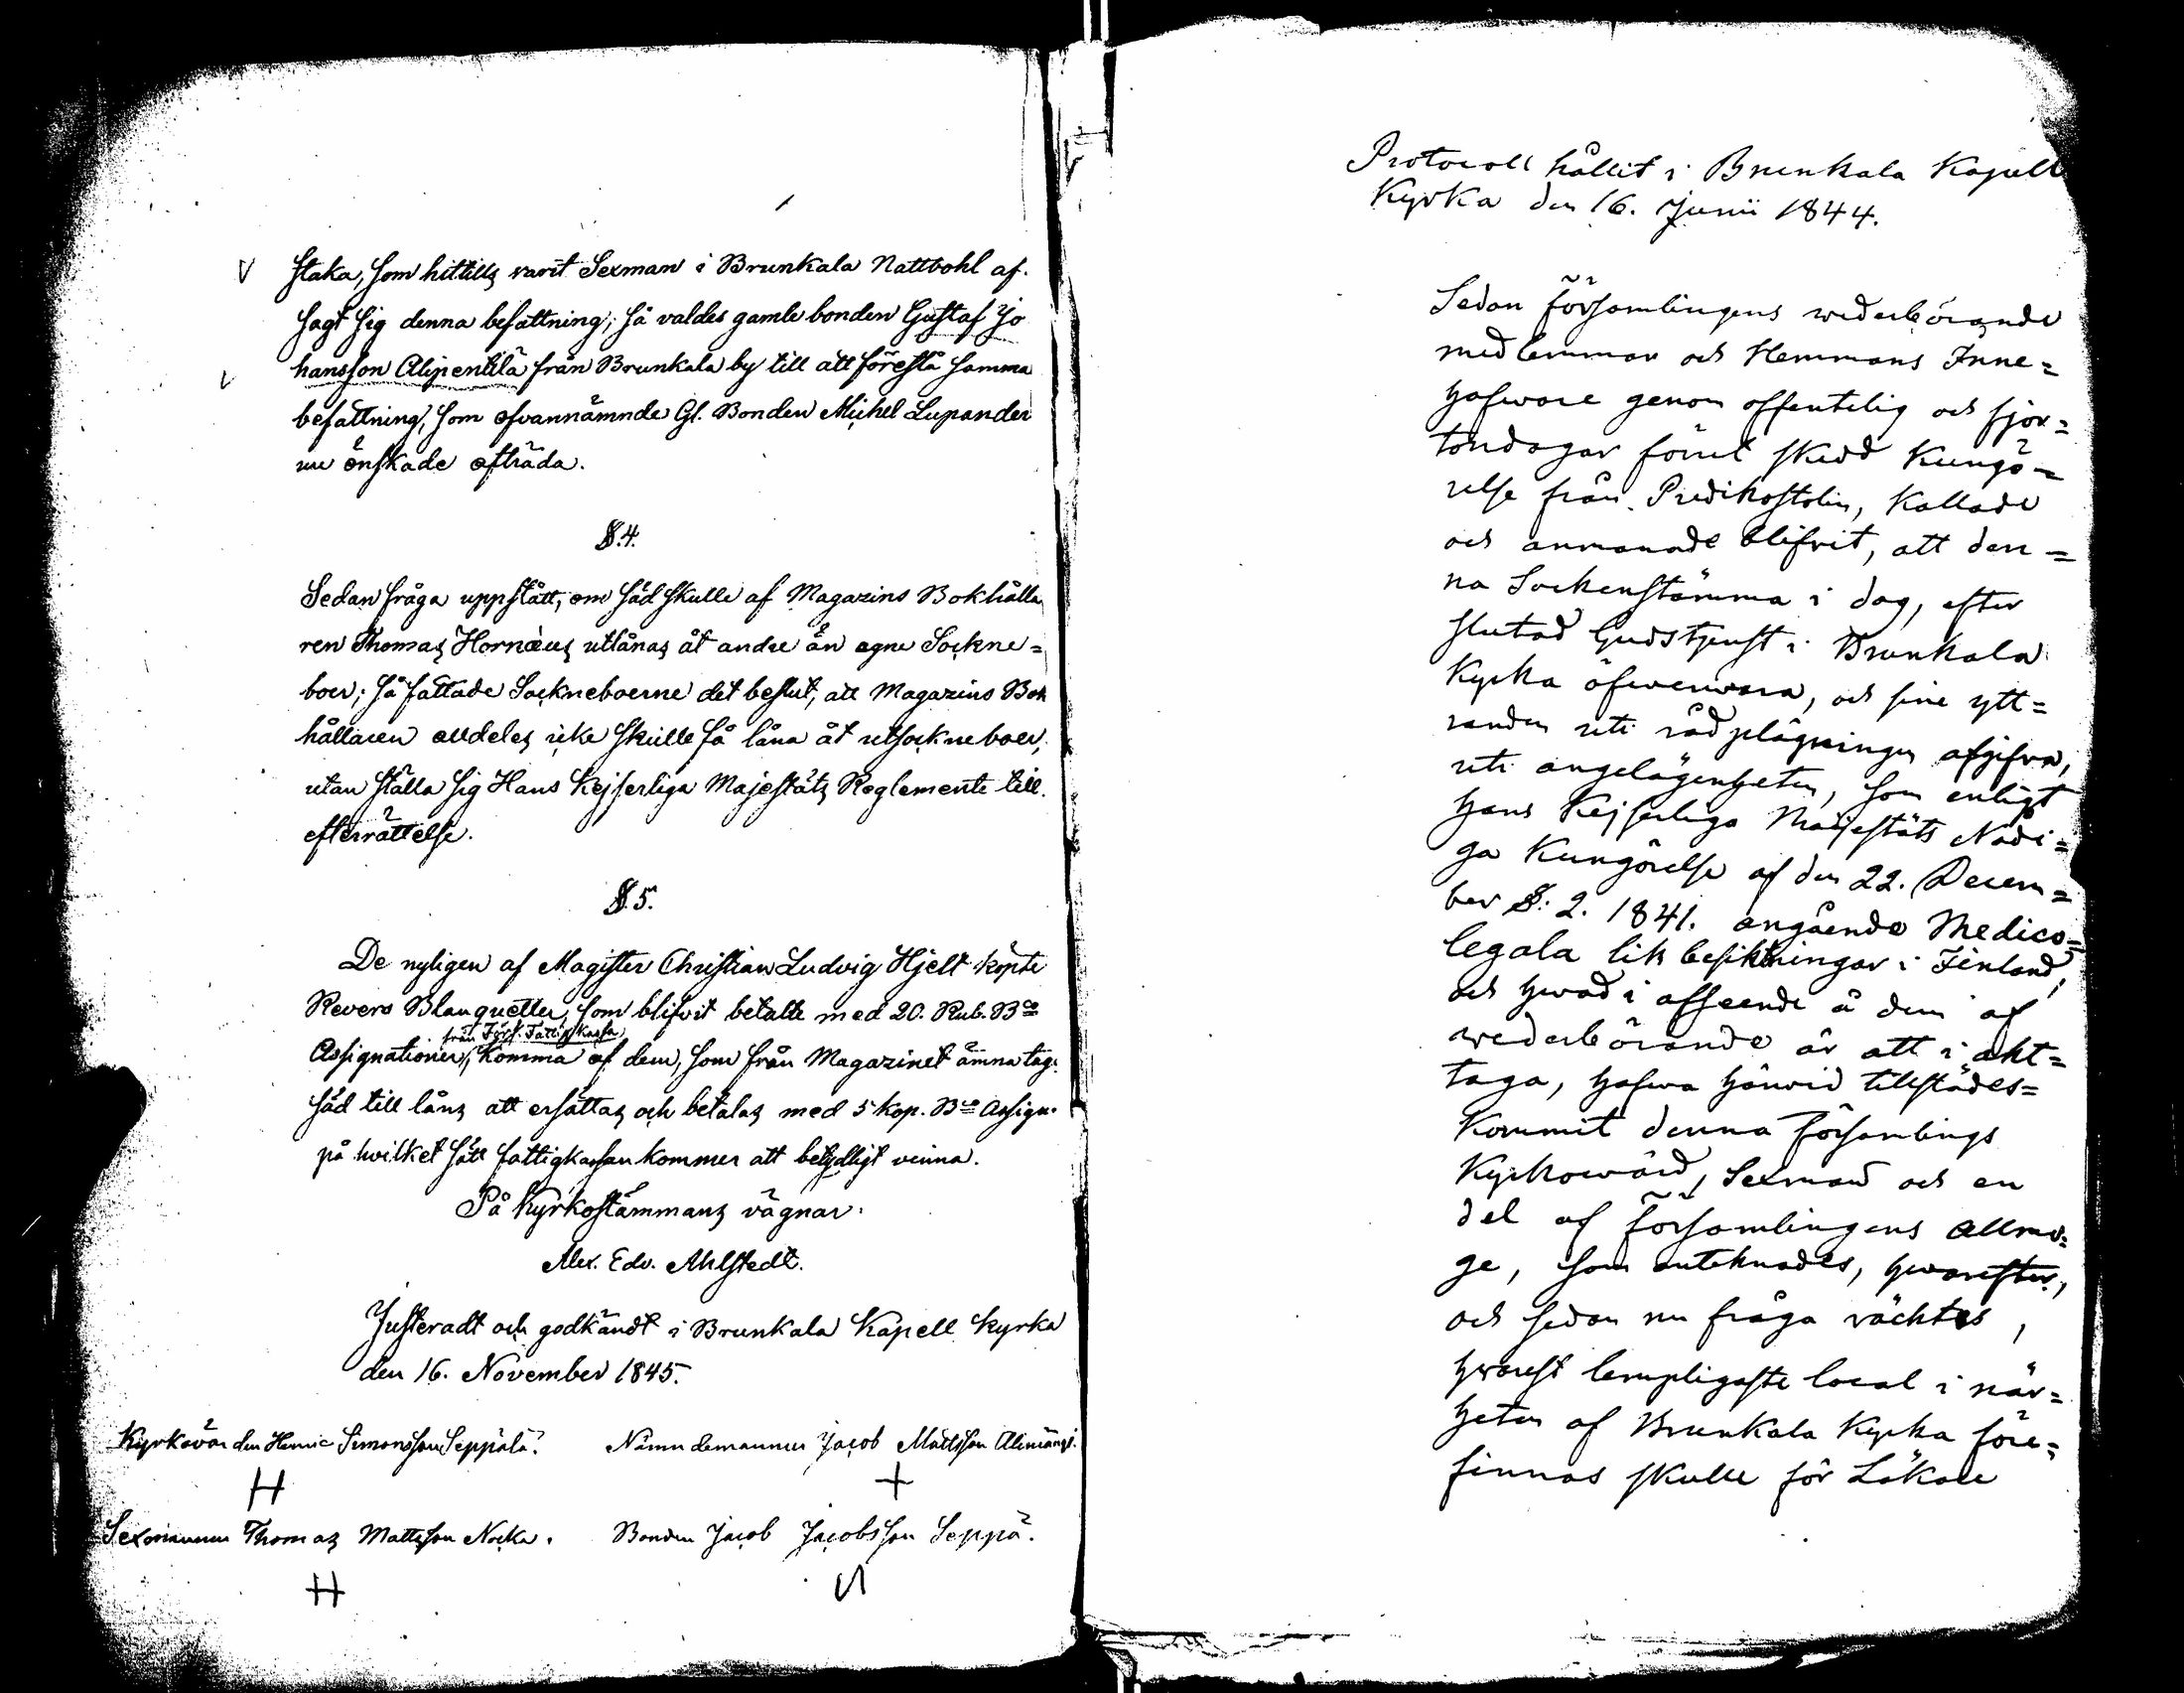 Staka, som hittills varit Sexman i Brunkala Nattbohl af-
sagt sig denna befattning; så valdes gamle bonden Gustaf Jo
hansson Alipentilä från Brunkala by till att förestå samma
befattning, som ofvannämnde Gl. Bonden Michel Lupander
nu önskade afträda.
§.4.
Sedan fråga uppstått, om säd skulle af Magazins Bokhålla
ren Thomas Hornæus utlånas åt andre än egne Sockne=
boer; så fattade Sockneboerne det beslut, att Magazins Bok
hållaren alldeles icke skulle få låna åt utsockneboer,
utan ställa sig Hans Kejserliga Majestäts Reglemente till
efterrättelse.
§.5.
De nyligen af Magister Christian Ludvig Hjelt köpte
Revers Blanquetter, som blifvit betalte med 20. Rub. Bco
från Förs. Fattigkassa
Assignationer, komma af dem, som från Magazinet ämna tag.
säd till låns att ersättas och betalas med 5 kop. Bco Assign.
på hvilket sätt fattigkassan kommer att betydligt vinna.
På Kyrkostämmans vägnar.
Alex. Edv. Ahlstedt.
Justeradt och godkändt i Brunkala Kapell kyrka
den 16. November 1845.
Kyrkovärden Henric Simonsson Seppälä. Nämndemannen Jacob Mattsson
H +
Sexmannen Thomas Mattsson Nocka. Bonden Jacob Jacobsson Seppä.
H И
Protocoll hållit i Brunkala Kapell
Kyrka den 16. Junii 1844.
Sedan församlingens wederbörande
medlemmar och Hemmans Inne=
hafware genom offentelig och fjor=
tondagar förut skedd Kungö=
relse från Predikostolen, Kallade
och anmanade blifvit, att den=
na Sockenstämma i dag, efter
slutad Gudstjenst i Brunkala
Kyrka öfwerwara, och sine ytt=
randen uti rådplägningen afgifva,
uti angelägenheten, som enligt
Hans Kejserliga Majestäts Nådi=
ga Kungörelse af den 22. Decem=
ber §: 2. 1841. angående Medico=
legala lik besiktningar i Finland,
och hwad i afseende å dem af
wederbörande är att i akt=
taga, hafwa härwid tillstädes=
Kommit denna församlings
Kyrkowärd, Sexman och en
del af församlingens allmo=
ge, som antecknades, hwarefter,
och sedan nu fråga väcktes,
hwarest lempligaste local i när=
heten af Brunkala Kyrka före=
finnas skulle för Läkare